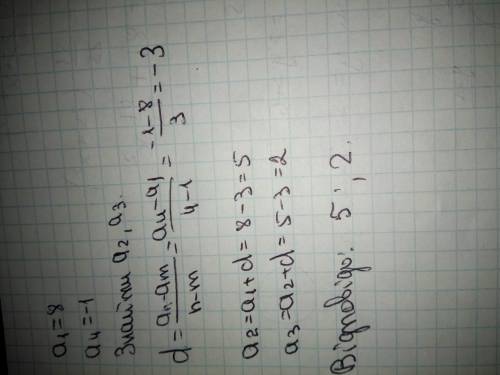 a₁=8
a₄=-1
Знайти a₂, a₃.
d = (aₙ-aₘ)/(n-m) = (a₄-a₁)/(4-1) = (-1-8)/3 = -3
a₂=a₁+d=8-3=5
a₃=a₂+d=5-3=2
Відповідь: 5; 2.